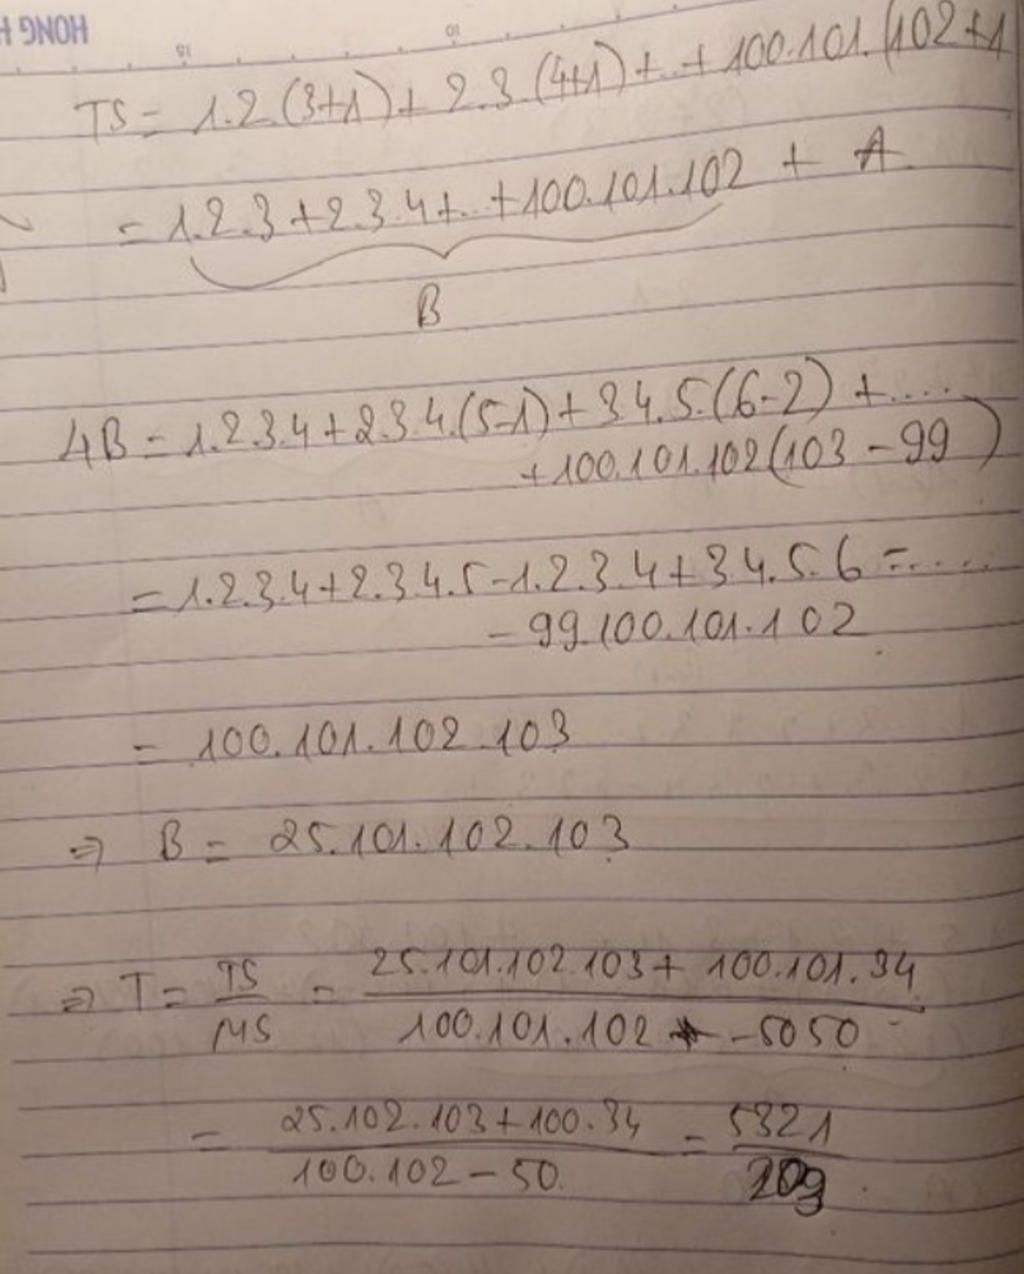 HONG H
15 10
TS = 1.2.(3+1)+ 2.3(4+1)+..+ 100.101.(102+1
= 1.2.3+2.3.4+..+100.101.102 + A
B
4B = 1.2.3.4+2.3.4.(5-1)+3.4.5.(6-2) +....
+100.101.102(103-99)
= 1.2.3.4+2.3.4.5-1.2.3.4+3.4.5.6 =.....
- 99.100.101.102
= 100.101.102.103
=> B = 25.101.102.103
=> T = TS/MS = 25.101.102.103 + 100.101.34 / 100.101.102 - 5050
= 25.102.103+100.34 / 100.102-50 = 5321/209